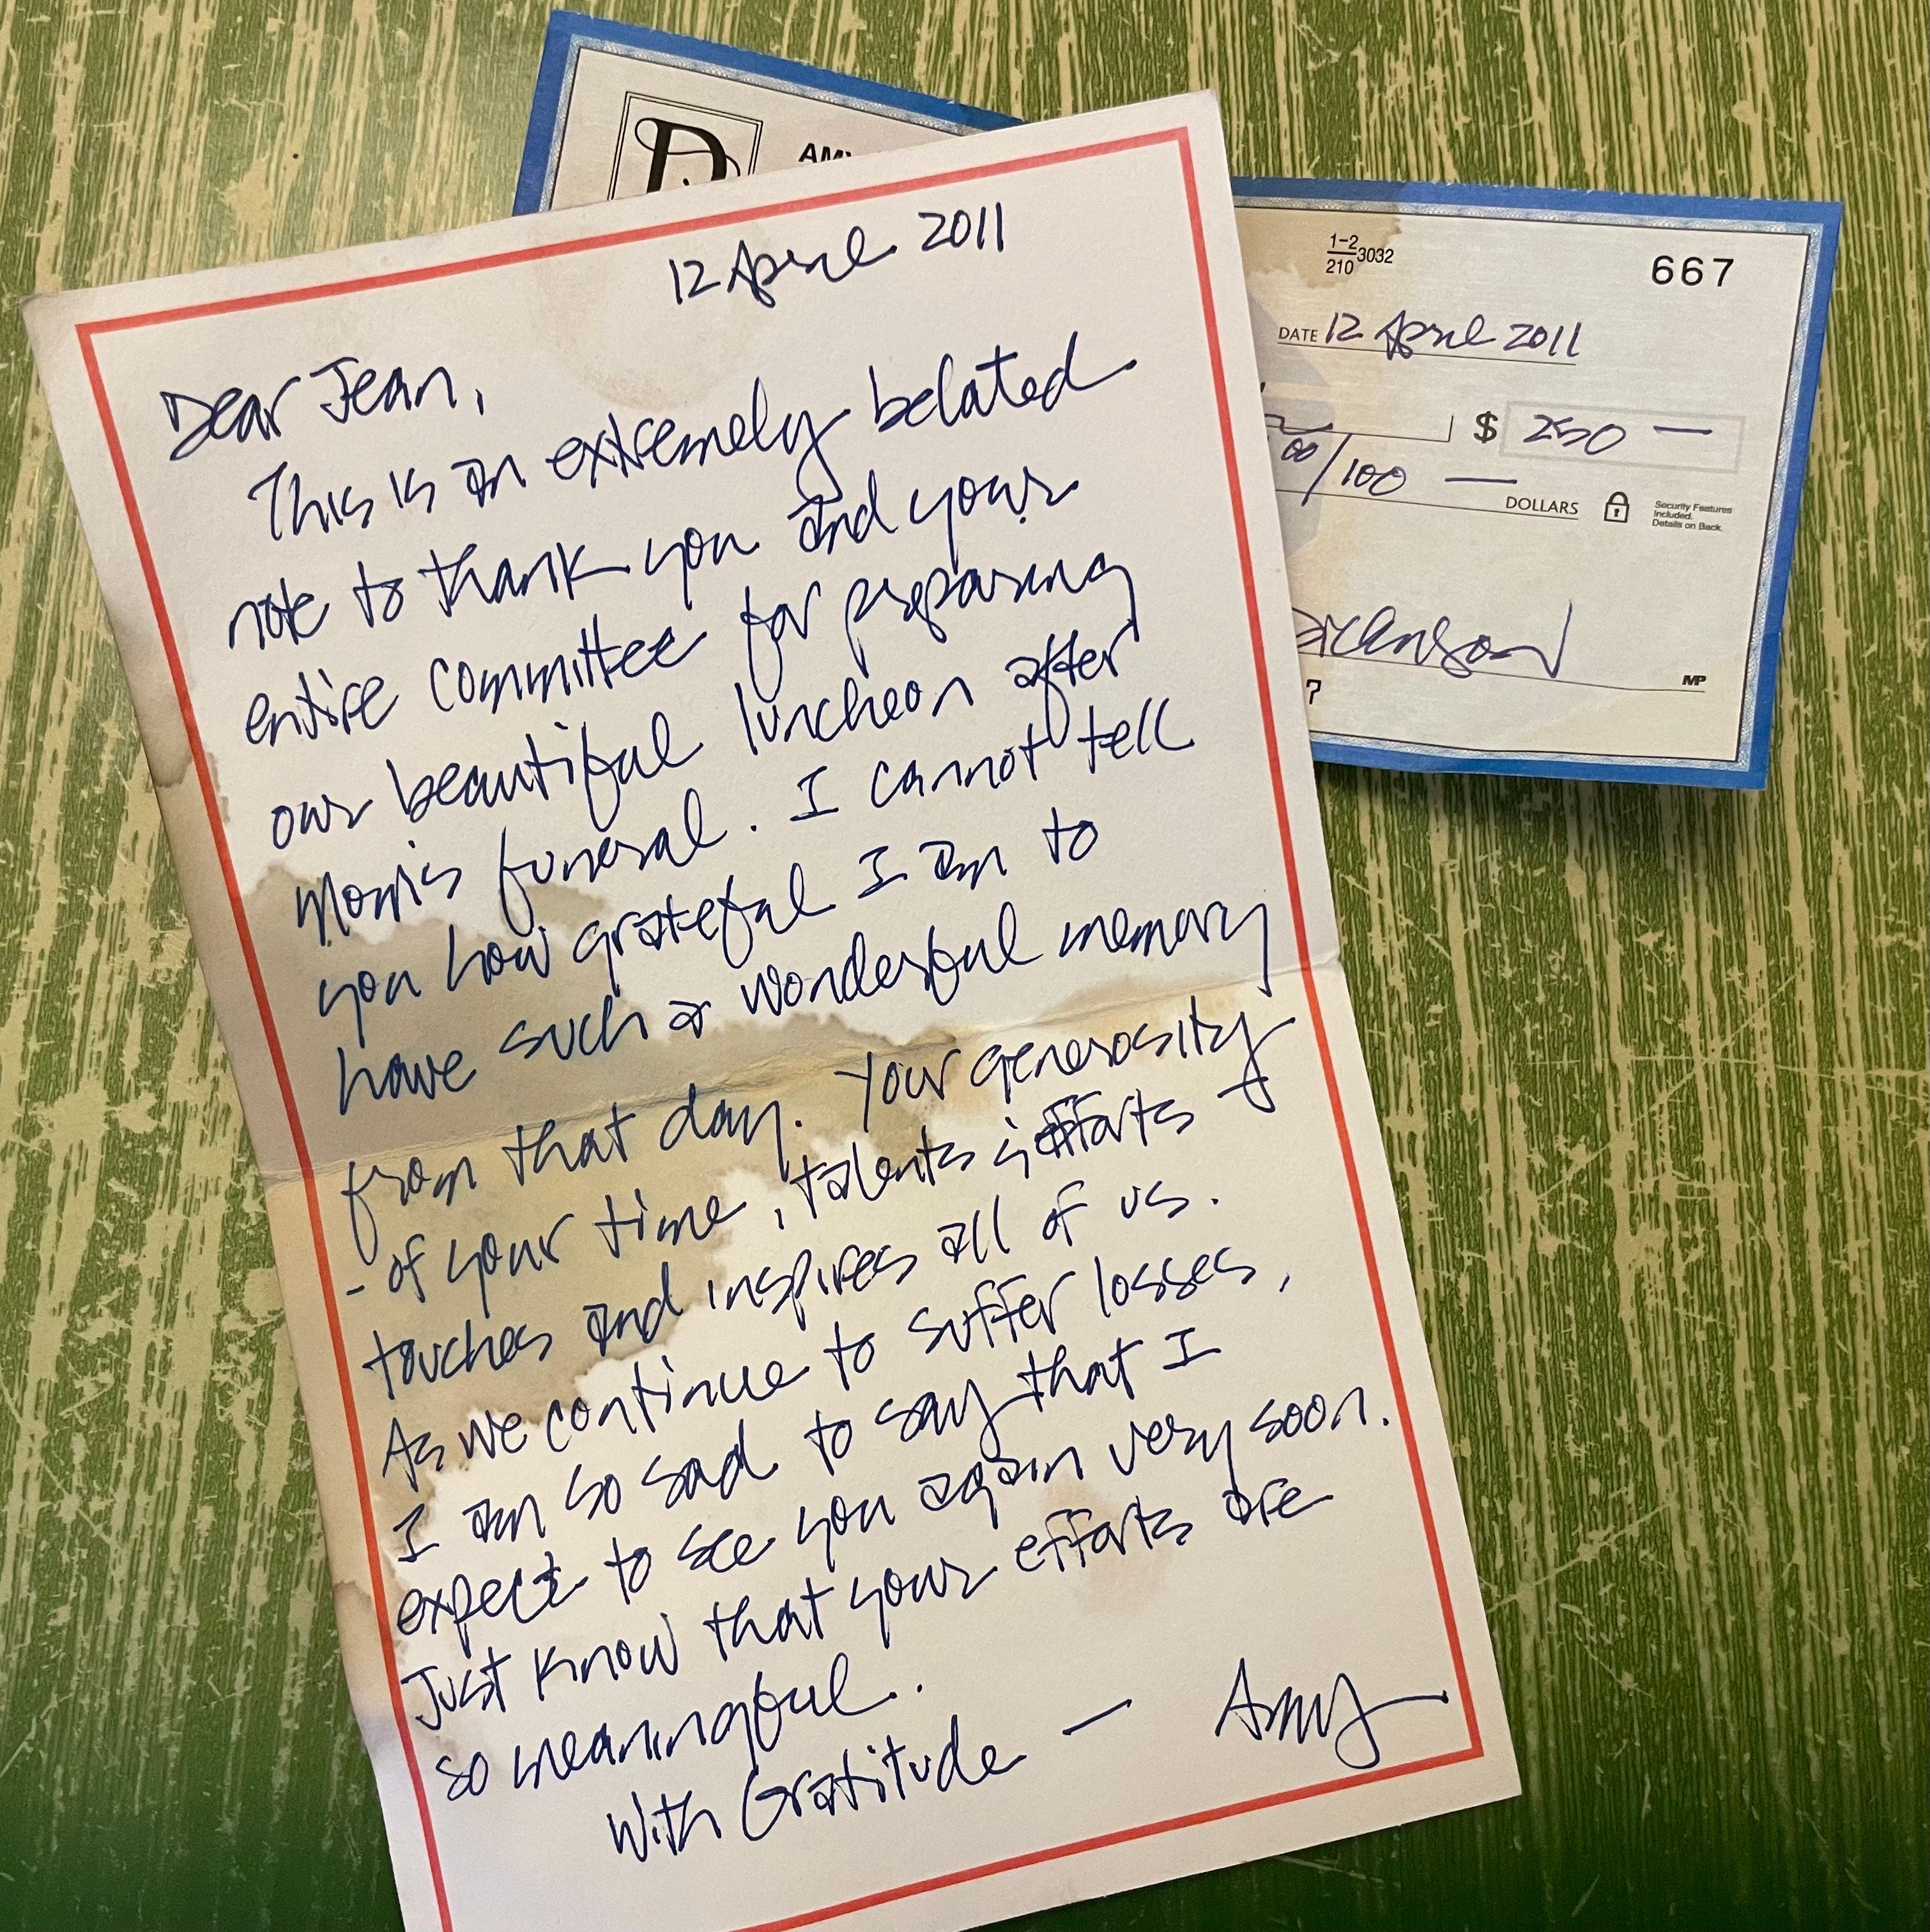 D
12 April 2011
Dear Jean,
This is an extremely belated
note to thank you and your
entire committee for preparing
our beautiful luncheon after
Mom's funeral. I cannot tell
you how grateful I am to
have such a wonderful memory
from that day. Your generosity
- of your time, talents & efforts -
touches and inspires all of us.
As we continue to suffer losses,
I am so sad to say that I
expect to see you again very soon.
Just know that your efforts are
so meaningful.
With Gratitude — Amy
1-2
210 3032
667
DATE 12 April 2011
$ 250 —
00/100 — DOLLARS
Security Features
Included.
Details on Back.
Dickinson
MP
7